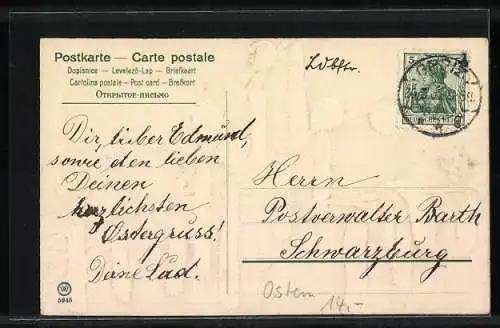 Postkarte — Carte postale
Dopisnice — Levelező-Lap — Briefkaart
Cartolina postale — Post card — Brefkort
Открытое письмо
Dir, lieber Edmund,
sowie den lieben
Deinen
herzlichsten
Ostergruss!
Deine
Herrn
Postverwalter Barth
Schwarzburg
5
5945
Ostern
14,-